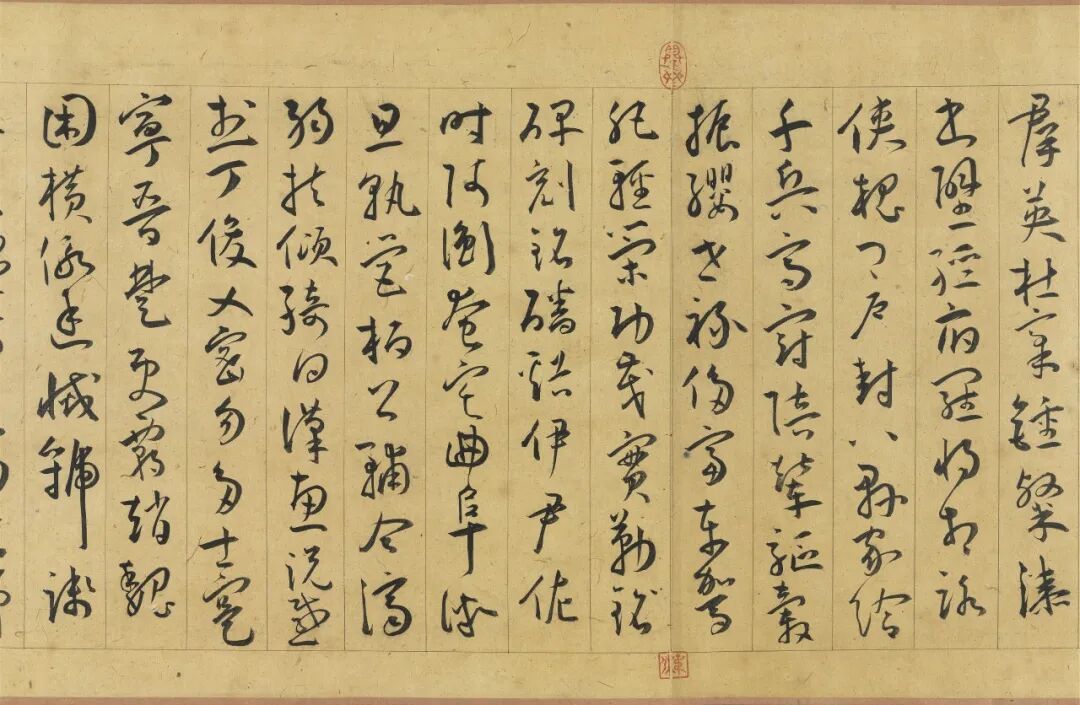 羣英杜稾鍾隸漆
書壁經府羅將相路
俠槐卿户封八縣家給
千兵高冠陪輦驅轂
振纓世祿侈富車駕
肥輕策功茂實勒銘
碑刻銘磻谿伊尹佐
时阿衡奄宅曲阜微
旦孰營桓公輔合濟
弱扶傾綺回漢惠説感
武丁俊乂密勿多士寔
寧晉楚更霸趙魏
困橫假途滅虢踐